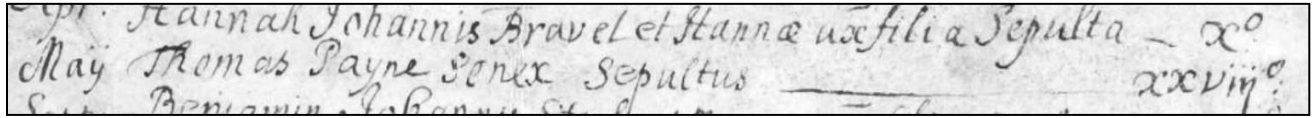 Apr. Hannah Johannis Bravel et Hannæ ux filia Sepulta — xº
Maÿ Thomas Payne Senex Sepultus xxviijº.
Benjamin Johannis